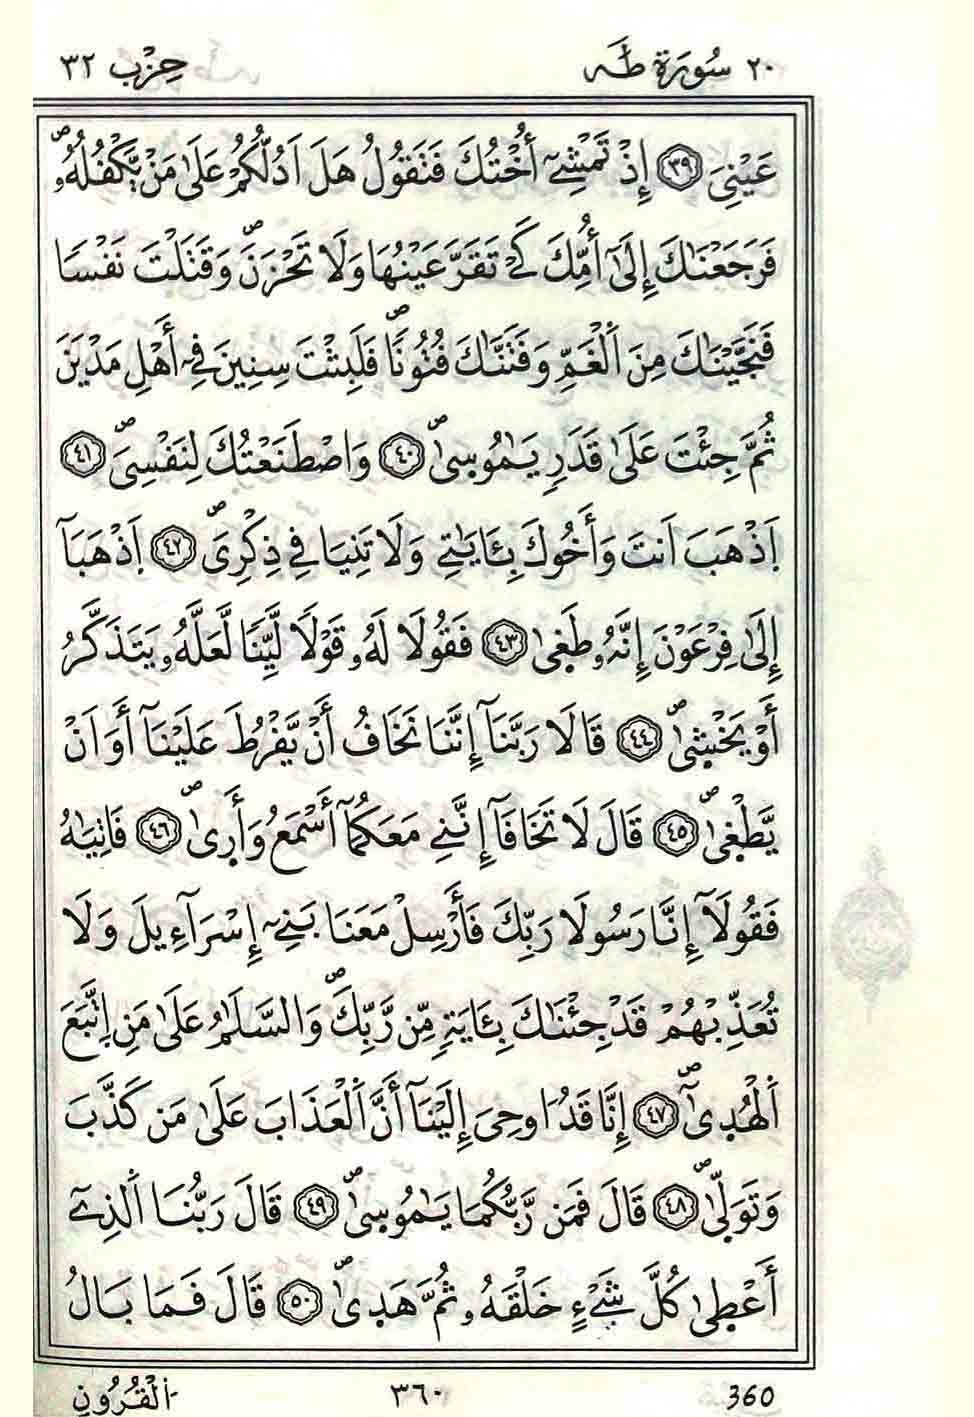 ٢٠ سُورَةُ طَٰهَ حِزْب ٣٢
عَيْنِيَ ٣٩ إِذْ تَمْشِےٓ أُخْتُكَ فَتَقُولُ هَلَ اَدُلُّكُمْ عَلَىٰ مَنْ يَّكْفُلُهُۥۖ
فَرَجَعْنَٰكَ إِلَىٰٓ أُمِّكَ كَےْ تَقَرَّ عَيْنُهَا وَلَا تَحْزَنَۖ وَقَتَلْتَ نَفْسَا
فَنَجَّيْنَٰكَ مِنَ اَ۬لْغَمِّ وَفَتَنَّٰكَ فُتُوناًۖ فَلَبِثْتَ سِنِينَ فِےٓ أَهْلِ مَدْيَنَ
ثُمَّ جِئْتَ عَلَىٰ قَدَرٍ يَٰمُوسىٰۖ ٤٠ وَاصْطَنَعْتُكَ لِنَفْسِيَۖ ٤١
اَ۪ذْهَبَ اَنتَ وَأَخُوكَ بِـَٔايَٰتِے وَلَا تَنِيَا فِے ذِكْرِيَۖ ٤٢ اَ۪ذْهَبَآ
إِلَىٰ فِرْعَوْنَ إِنَّهُۥ طَغىٰ ٤٣ فَقُولَا لَهُۥ قَوْلاً لَّيِّناً لَّعَلَّهُۥ يَتَذَكَّرُ
أَوْ يَخْشىٰۖ ٤٤ قَالَا رَبَّنَآ إِنَّنَا نَخَافُ أَنْ يَّفْرُطَ عَلَيْنَآ أَوَ اَنْ
يَّطْغىٰۖ ٤٥ قَالَ لَا تَخَافَآ إِنَّنِے مَعَكُمَآ أَسْمَعُ وَأَرىٰۖ ٤٦ فَاتِيَٰهُ
فَقُولَآ إِنَّا رَسُولَا رَبِّكَ فَأَرْسِلْ مَعَنَا بَنِےٓ إِسْرَآءِيلَ وَلَا
تُعَذِّبْهُمْ قَدْ جِئْنَٰكَ بِـَٔايَةٍ مِّن رَّبِّكَۖ وَالسَّلَٰمُ عَلَىٰ مَنِ اِ۪تَّبَعَ
اَ۬لْهُدىٰٓۖ ٤٧ إِنَّا قَدُ ا۟وحِيَ إِلَيْنَآ أَنَّ اَ۬لْعَذَابَ عَلَىٰ مَن كَذَّبَ
وَتَوَلّىٰۖ ٤٨ قَالَ فَمَن رَّبُّكُمَا يَٰمُوسىٰۖ ٤٩ قَالَ رَبُّنَا اَ۬لذِےٓ
أَعْطىٰ كُلَّ شَےْءٍ خَلْقَهُۥ ثُمَّ هَدىٰۖ ٥٠ قَالَ فَمَا بَالُ
اَ۬لْقُرُونِ ٣٦٠ 360